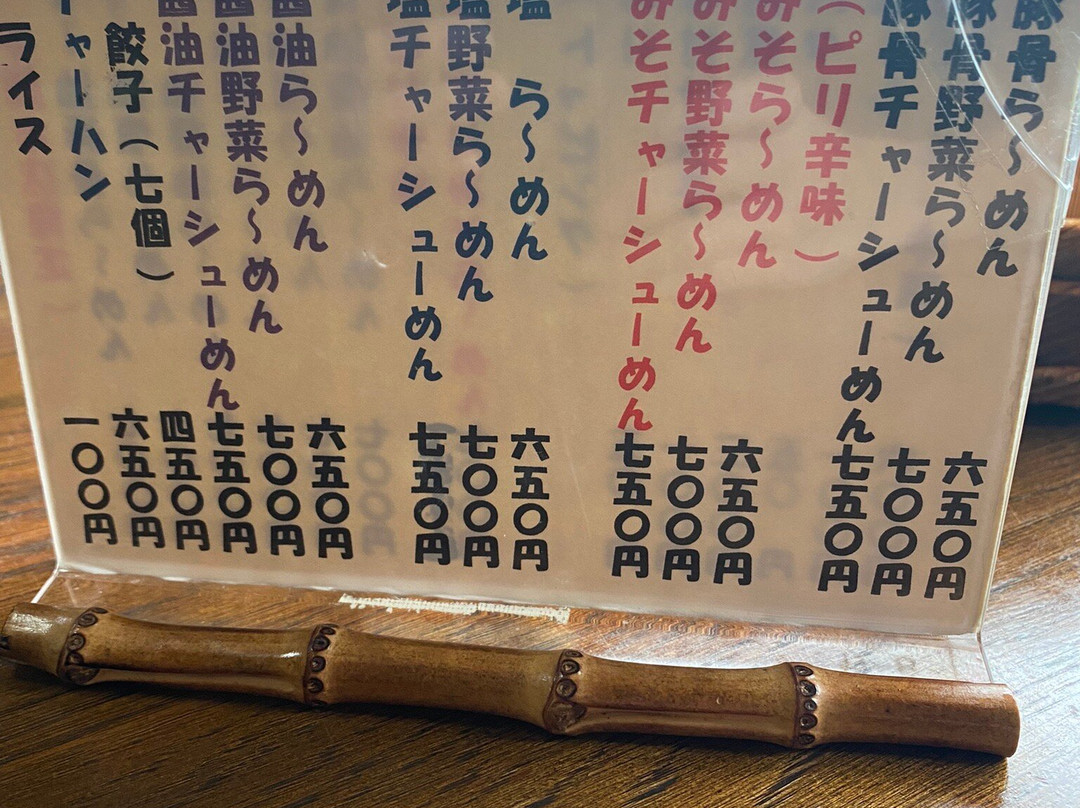 豚骨ら～めん 六五〇円
豚骨野菜ら～めん 七〇〇円
豚骨チャーシューめん 七五〇円
（ピリ辛味）
みそら～めん 六五〇円
みそ野菜ら～めん 七〇〇円
みそチャーシューめん 七五〇円
塩 ら～めん 六五〇円
塩野菜ら～めん 七〇〇円
塩チャーシューめん 七五〇円
醤油ら～めん 六五〇円
醤油野菜ら～めん 七〇〇円
醤油チャーシューめん 七五〇円
餃子（七個） 四五〇円
チャーハン 六五〇円
ライス 一〇〇円